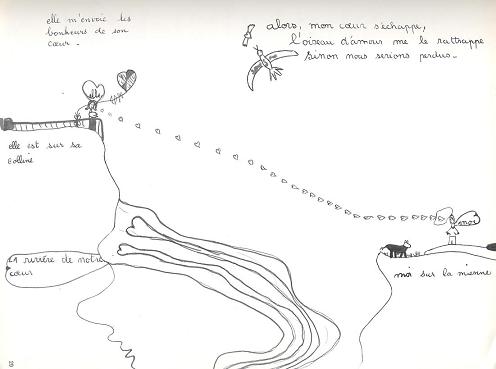 elle m'envoie les
bonheurs de son
cœur.
alors, mon cœur s'échappe,
l'oiseau d'amour me le rattrappe
sinon nous serions perdus.
elle
elle est sur sa
colline
moi
moi sur la mienne
la rivière de notre
cœur